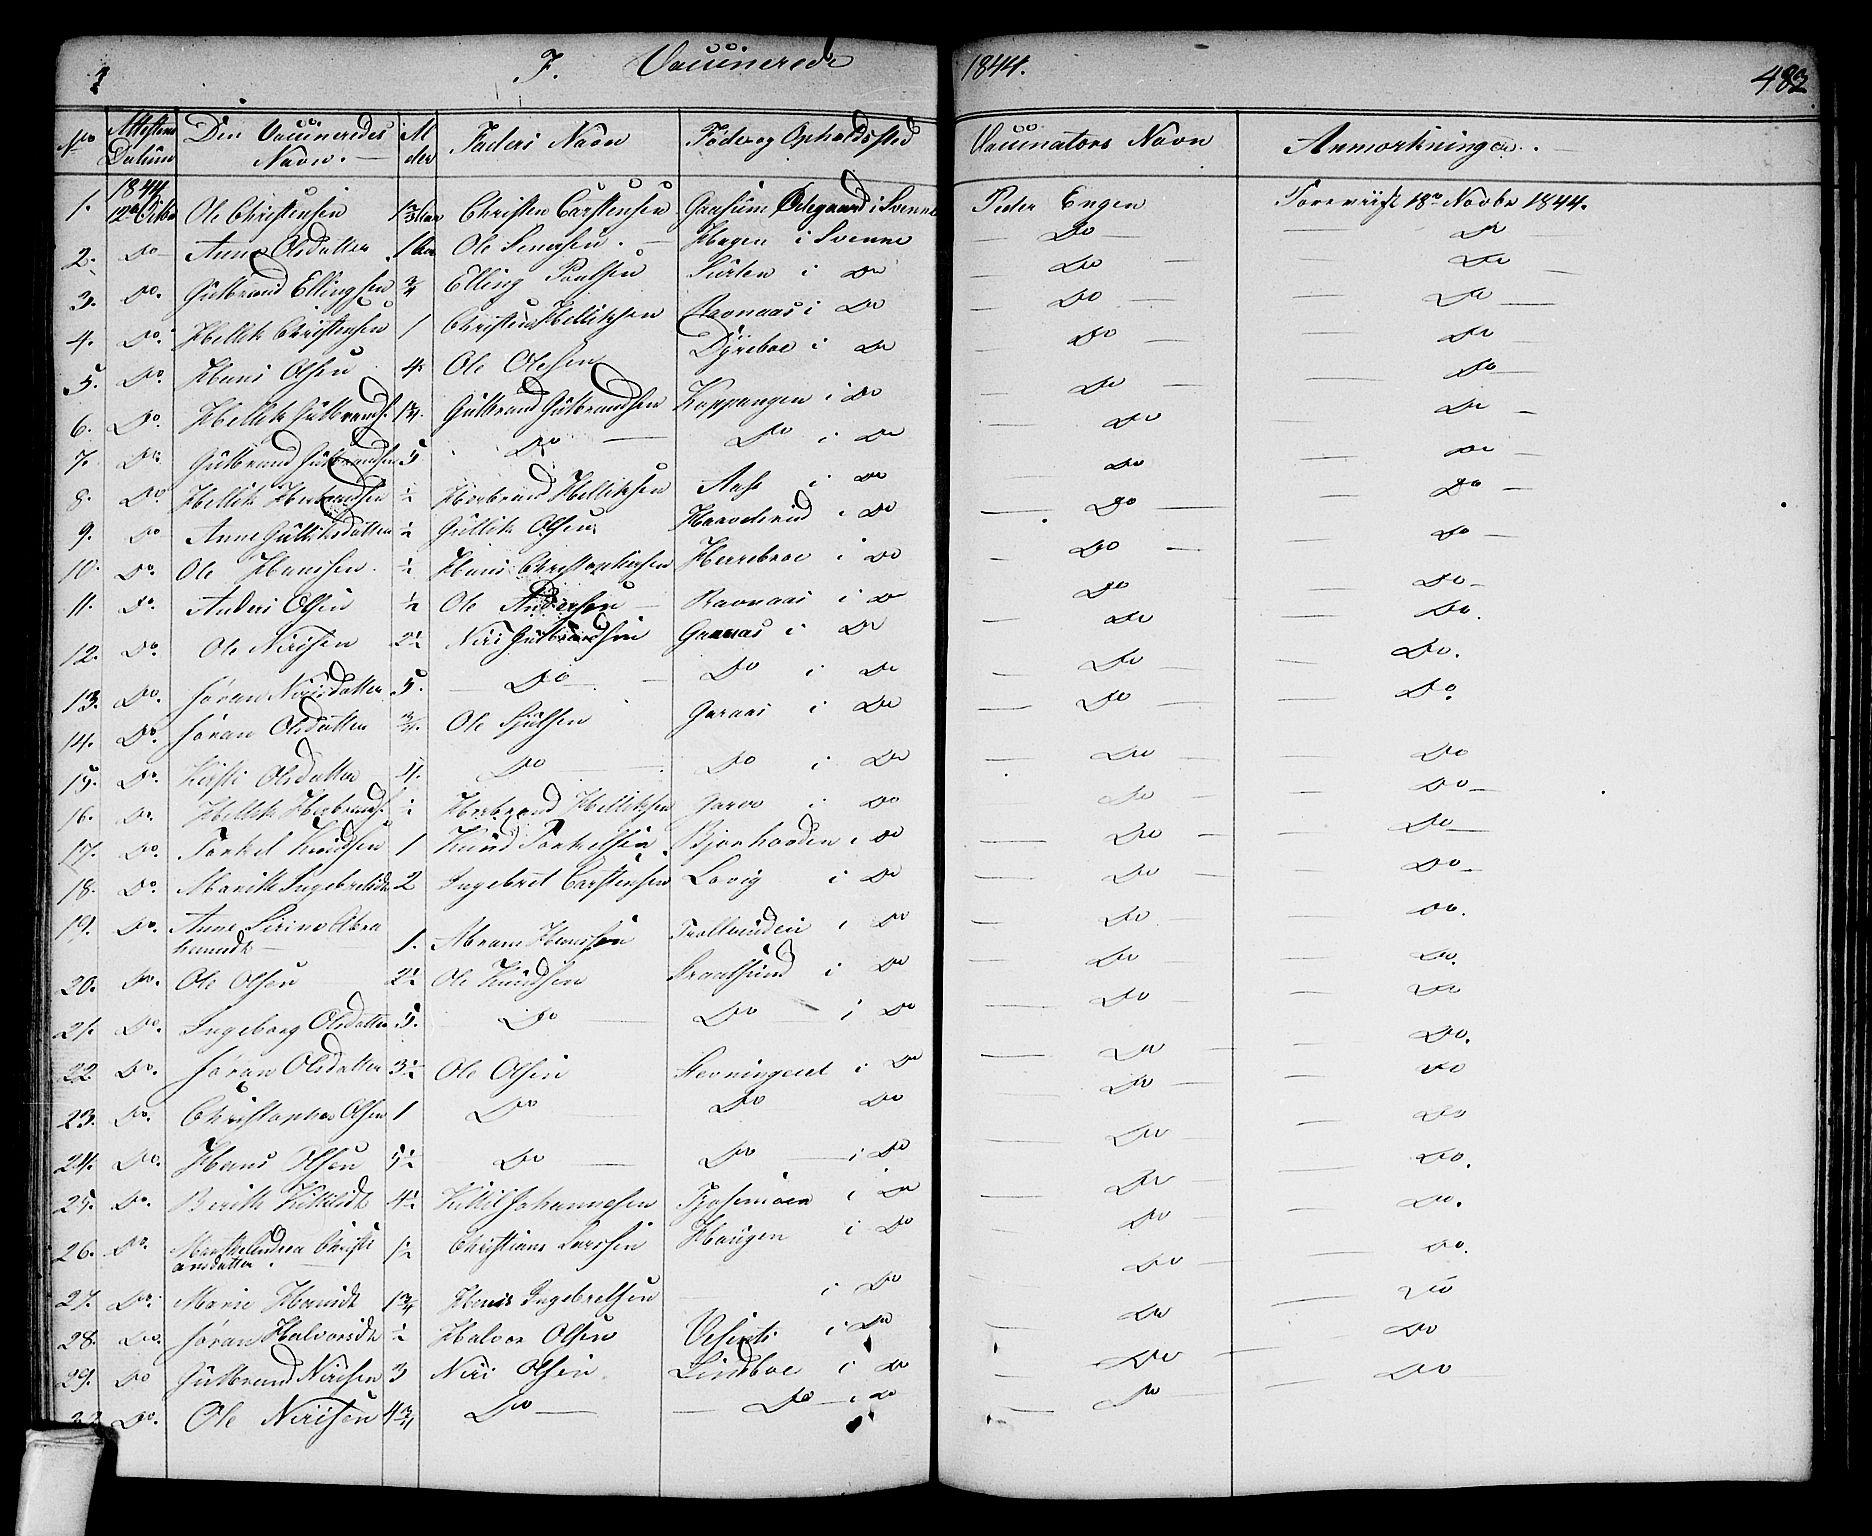 F. Vaccinerede 1844. 483
No Attestens Datum Den Vaccineredes Navn. Alder Faders Navn Føde og Opholdssted Vaccinators Navn Anmærkninger.
1. 1844 12 Octbr Ole Christensen Christen Carstensen Ødegaard i Svenne Peder Engen Foreviist 18de Novbr 1844.
2. Do Anne Olsdatter 1 Aar Ole Hagen i Svenne Do Do
3. Do. Gulbrand Ellingsen 3/4 Elling Paulsen i Do Do Do
4. Do. Hellik Christensen 1 Christen Helliksen Ravnaas i Do Do Do
5. Do. Hans Olsen 4 Ole Olesen Dÿreboe i Do Do Do
6. Do. Hellik Gulbrands. 1 3/4. Gulbrand Gulbrandsen Koppangen i Do Do Do
7. Do. Gulbrand Gulbrandsen 5 Do Do i Do Do Do
8. Do. Hellik Herbrandsen 1/2 Herbrand Helliksen Aase i Do Do Do
9. Do Anne Gulliksdatter 1/2 Gullik Olsen i Do Do Do
10. Do. Ole Hansen 1/2 Hans Christophersen Herrebroe i Do Do Do
11. Do. Anders Olsen 1/2 Ole Andersen Ravnaas i Do Do Do
12. Do. Ole Nirisen 2 1/2 Niri Gulbrandsen Granaas i Do Do Do.
13. Do. Jøran Nirisdatter 5. Do Do i Do Do Do.
14. Do. Jøran Olsdatter 3/4. Ole Garaas i Do Do Do.
15. Do. Kirsti Olsdatter 4. Do Do i Do Do Do
16. Do. Hellik Herbrands. 1/2 Herbrand Helliksen i Do Do Do
17. Do. Torkel Knudsen 1 Knud Torkelsen i Do Do Do
18. Do. Marith Ingebretsdt 2 Ingebret Carstensen Lovig i Do Do Do
19. Do. Anne Sirine Abra
hamsdt 1. Abram Hanssen i Do Do Do.
20. Do. Ole Olsen 2 1/2 Ole Knudsen i Do Do Do.
21. Do. Ingeborg Olsdatter 5. Do Do i Do Do Do
22 Do. Jøran Olsdatter 3 1/2 Ole Olsen i Do Do Do.
23. Do. Christopher Olsen 1 Do Do Do Do Do
24. Do. Hans Olsen 5 1/2 Do Do i Do Do Do
25. Do. Berith Kittilsdt 4 1/2 Kittil Johannesen i Do Do Do.
26. Do. Christi
ansdatter 1/2 Christian Larssen Haugen i Do Do Do.
27. Do. Marie Hansdt 1 3/4 Hans Ingebretsen i Do Do Do.
28. Do. Jøran Halvorsdt 1/2 Halvor Olsen i Do Do Do
29. Do Gulbrand Nirisen 3 Niri Olsen Lindboe i Do Do Do
Do. Ole Nirisen 4 3/4 Do Do i Do Do Do